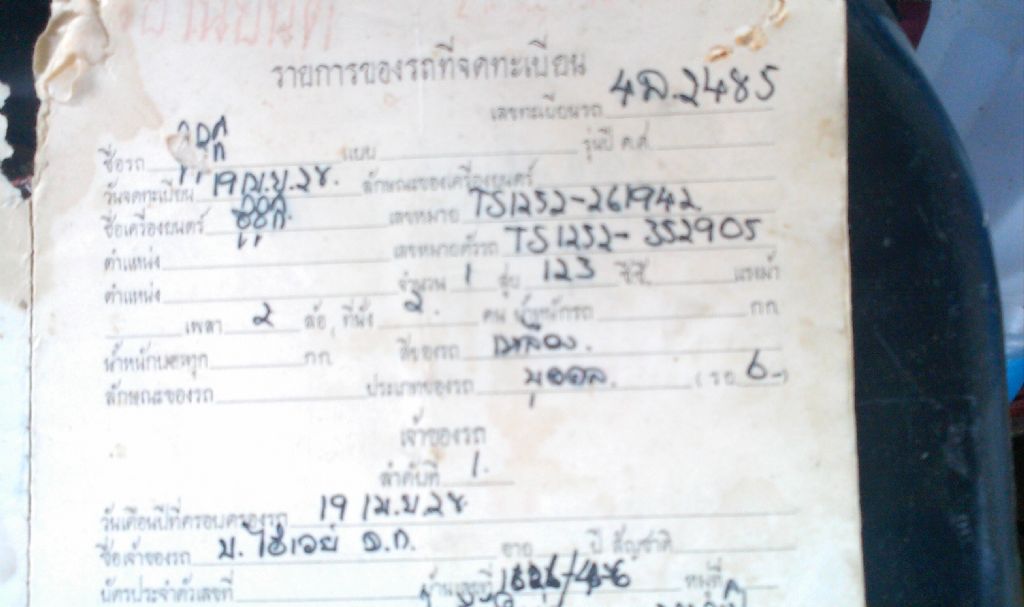 รายการของรถที่จดทะเบียน
เลขทะเบียนรถ 4ล.2485
ชื่อรถ แบบ รุ่นปี ค.ศ.
วันจดทะเบียน 19 เม.ย.24. ลักษณะของเครื่องยนต์
ชื่อเครื่องยนต์ ซูซูกิ. เลขหมาย TS1252-261942
ตำแหน่ง เลขหมายตัวรถ TS1252-352905
ตำแหน่ง จำนวน 1 สูบ 123 ซีซี แรงม้า
เพลา 2 ล้อ, ที่นั่ง 2. คน น้ำหนักรถ กก.
น้ำหนักบรรทุก กก. สีของรถ เหลือง.
ลักษณะของรถ ประเภทของรถ (รย. 6-)
เจ้าของรถ
ลำดับที่ 1.
วันเดือนปีที่ครอบครองรถ 19 เม.ย 24
ชื่อเจ้าของรถ บ. ไฮเวย์ จ.ก. อายุ ปี สัญชาติ
บัตรประจำตัวเลขที่ บ้านเลขที่ หมู่ที่